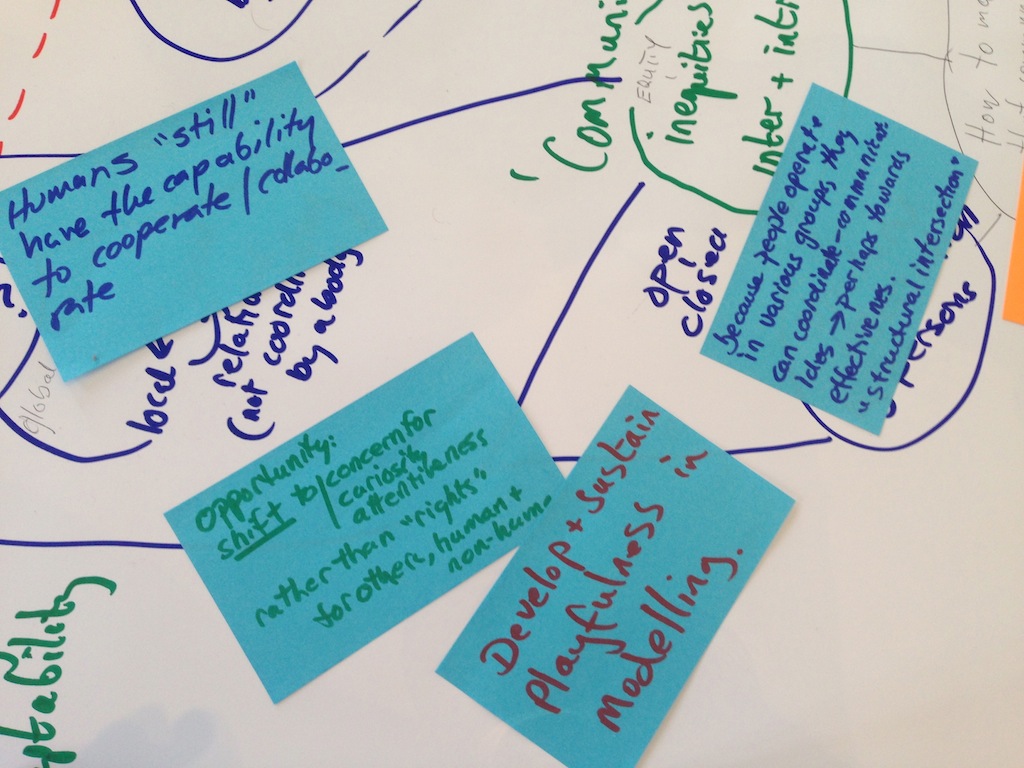 Humans "still"
have the capability
to cooperate / collabo-
rate
global
local
relatio
(not coordin
by a body
opportunity:
shift to / concern for
curiosity
attentiveness
rather than "rights"
for others, human +
non-hum-
Develop + sustain
Playfulness in
Modelling.
because people operate
in various groups they
can coordinate - communitate
Ides → perhaps towards
effectivenes.
"structural intersection"
persons
open
closed
'Communi
EQUITY
inequities
inter + int
How to ma
ptability